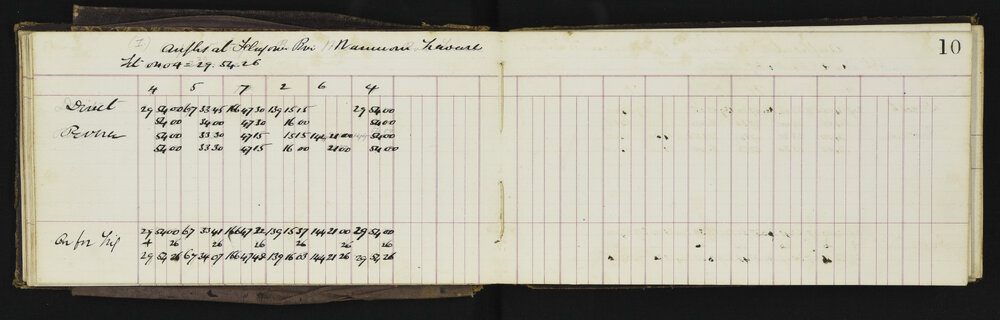 (1) Angles at
10
Set on 04 = 29. 54. 26
4 5 7 2 6 4
Direct 29 54 00 67 33 45 166 47 30 139 15 15 29 54 00
54 00 34 00 47 30 16 00 54 00
Reverse 54 00 33 30 47 15 15 15 144 21 00 54 00
54 00 33 30 47 15 16 00 21 00 54 00
29 54 00 67 33 41 166 47 22 139 15 37 144 21 00 29 54 00
+ 26 26 26 26 26 26
29 54 26 67 34 07 166 47 48 139 16 03 144 21 26 29 54 26